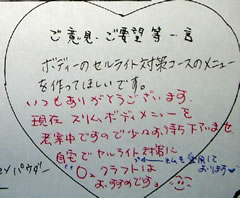 ご意見、ご要望等一言
ボディーのセルライト対策コースのメニュー
を作ってほしいです。
いつもありがとうございます。
現在スリムボディメニューを
考案中ですので少々お待ち下さいませ
自宅でセルライト対策に
私も愛用して
おります♥
O2クラフトは
おすすめです。
パウダー